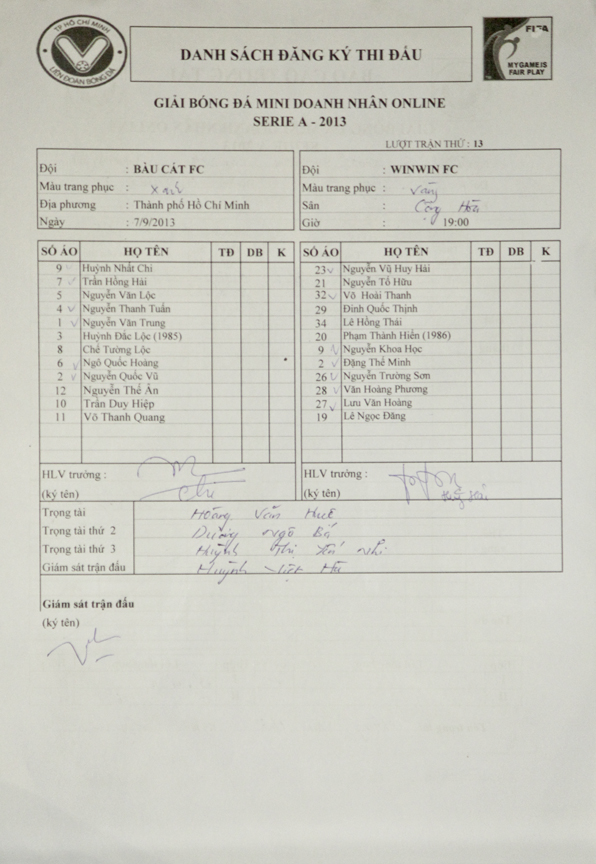 TP HỒ CHÍ MINH
LIÊN ĐOÀN BÓNG ĐÁ
DANH SÁCH ĐĂNG KÝ THI ĐẤU
FIFA
MY GAME IS
FAIR PLAY
GIẢI BÓNG ĐÁ MINI DOANH NHÂN ONLINE
SERIE A - 2013
LƯỢT TRẬN THỨ : 13
Đội : BÀU CÁT FC
Màu trang phục : xanh
Địa phương : Thành phố Hồ Chí Minh
Ngày : 7/9/2013
Đội : WINWIN FC
Màu trang phục : vàng
Sân : Cộng Hòa
Giờ : 19:00
SỐ ÁO HỌ TÊN TĐ DB K
9 Huỳnh Nhất Chi
7 Trần Hồng Hải
5 Nguyễn Văn Lộc
4 Nguyễn Thanh Tuấn
1 Nguyễn Văn Trung
3 Huỳnh Đắc Lộc (1985)
8 Chế Tường Lộc
6 Ngô Quốc Hoàng
2 Nguyễn Quốc Vũ
12 Nguyễn Thế Ân
10 Trần Duy Hiệp
11 Võ Thanh Quang
SỐ ÁO HỌ TÊN TĐ DB K
23 Nguyễn Vũ Huy Hải
21 Nguyễn Tố Hữu
32 Võ Hoài Thanh
29 Đinh Quốc Thịnh
34 Lê Hồng Thái
20 Phạm Thành Hiển (1986)
9 Nguyễn Khoa Học
2 Đặng Thế Minh
26 Nguyễn Trường Sơn
28 Văn Hoàng Phương
27 Lưu Văn Hoàng
19 Lê Ngọc Đăng
HLV trưởng :
(ký tên) Chi
HLV trưởng :
(ký tên)
Trọng tài Hoàng Văn Huê
Trọng tài thứ 2 Dương Ngô Bá
Trọng tài thứ 3 Huỳnh Thị Yến Nhi
Giám sát trận đấu Huỳnh Việt
Giám sát trận đấu
(ký tên)